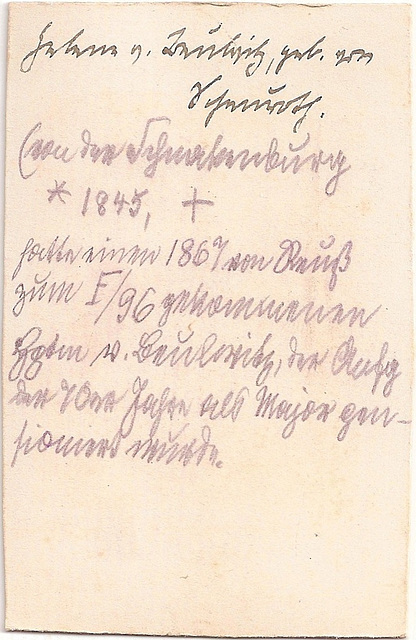 Helene v. Beulwitz, geb. von
Schauroth.
(von der Schnakenburg
* 1845, +
hatte einen 1867 von Reuß
zum F/96 gekommenen
Hptm v. Beulwitz, der Anfg
der 70er Jahre als Major pen-
sioniert wurde.